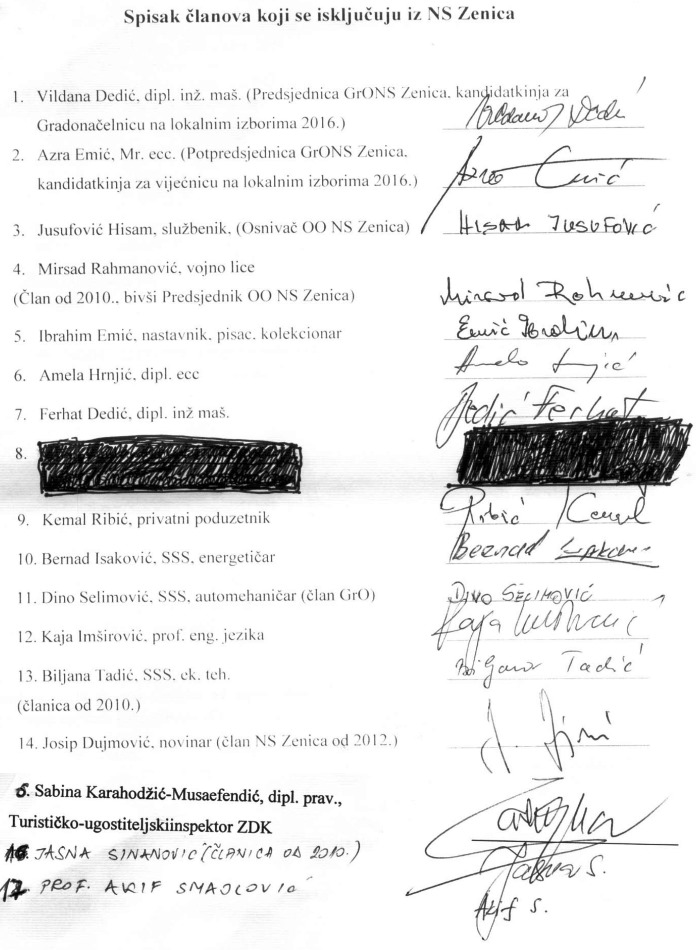 Spisak članova koji se isključuju iz NS Zenica
1. Vildana Dedić, dipl. inž. maš. (Predsjednica GrONS Zenica, kandidatkinja za
Gradonačelnicu na lokalnim izborima 2016.)
2. Azra Emić, Mr. ecc. (Potpredsjednica GrONS Zenica,
kandidatkinja za vijećnicu na lokalnim izborima 2016.)
3. Jusufović Hisam, službenik, (Osnivač OO NS Zenica) HISAM JUSUFOVIĆ
4. Mirsad Rahmanović, vojno lice
(Član od 2010., bivši Predsjednik OO NS Zenica)
5. Ibrahim Emić, nastavnik, pisac, kolekcionar Emić Ibrahim
6. Amela Hrnjić, dipl. ecc
7. Ferhat Dedić, dipl. inž maš. Dedić Ferhat
8.
9. Kemal Ribić, privatni poduzetnik Ribić Kemal
10. Bernad Isaković, SSS, energetičar Bernad
11. Dino Selimović, SSS, automehaničar (član GrO) DINO SELIMOVIĆ
12. Kaja Imširović, prof. eng. jezika Kaja
13. Biljana Tadić, SSS, ek. teh. Tadić
(članica od 2010.)
14. Josip Dujmović, novinar (član NS Zenica od 2012.)
5. Sabina Karahodžić-Musaefendić, dipl. prav.,
Turističko-ugostiteljskiinspektor ZDK
16. JASNA SINANOVIĆ (ČLANICA OD 2010.) Jasna S.
17. PROF. AKIF SMAJLOVIĆ Akif S.